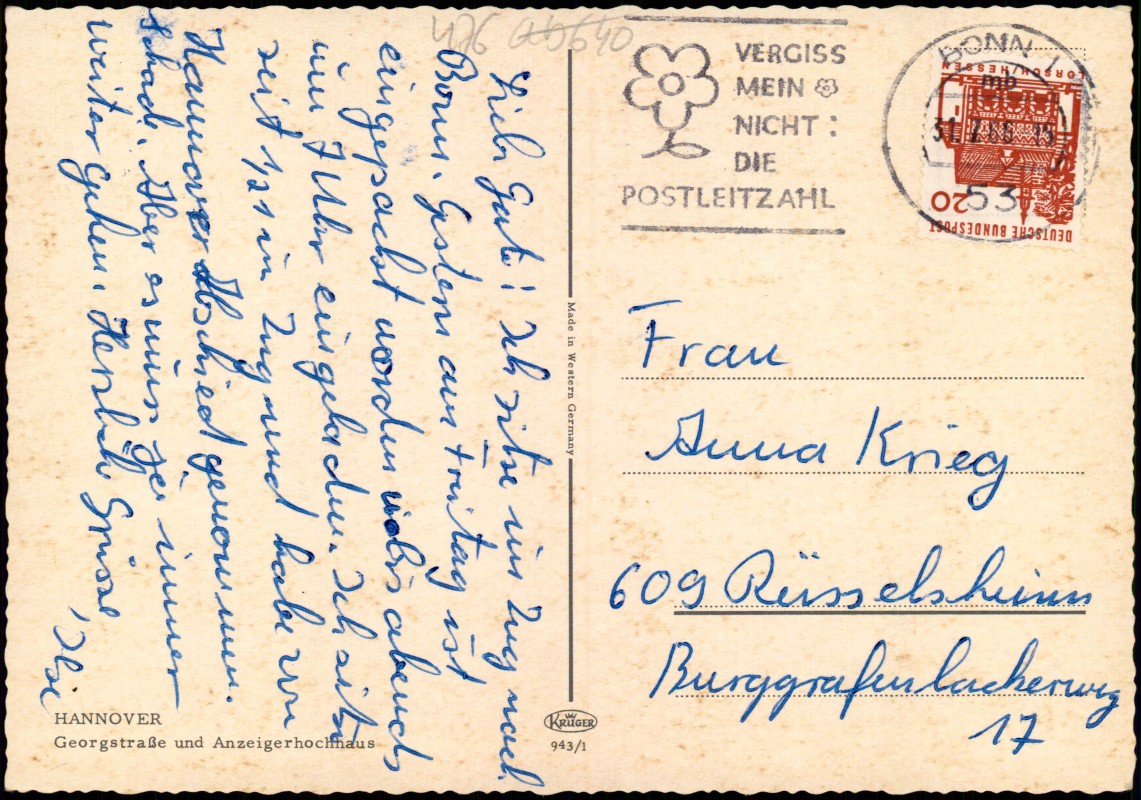 476 640
VERGISS
MEIN
NICHT:
DIE
POSTLEITZAHL
BONN 1
mp
31.7.66-15
53
LORSCH/HESSEN
20
DEUTSCHE BUNDESPOST
Liebe Gute! Ich sitze im Zug nach
Bonn. Gestern am Freitag ist
eingepackt worden bis abends
um 7 Uhr eingeladen. Ich sitze
seit 1/2 1 im Zug und habe von
Hannover Abschied genommen.
Schade. Aber es muss ja immer
weiter gehen. Herzliche Grüsse,
Ilse
Made in Western Germany
Frau
Anna Krieg
609 Rüsselsheim
Burggrafenlackerweg
17
HANNOVER
Georgstraße und Anzeigerhochhaus
KRÜGER
943/1